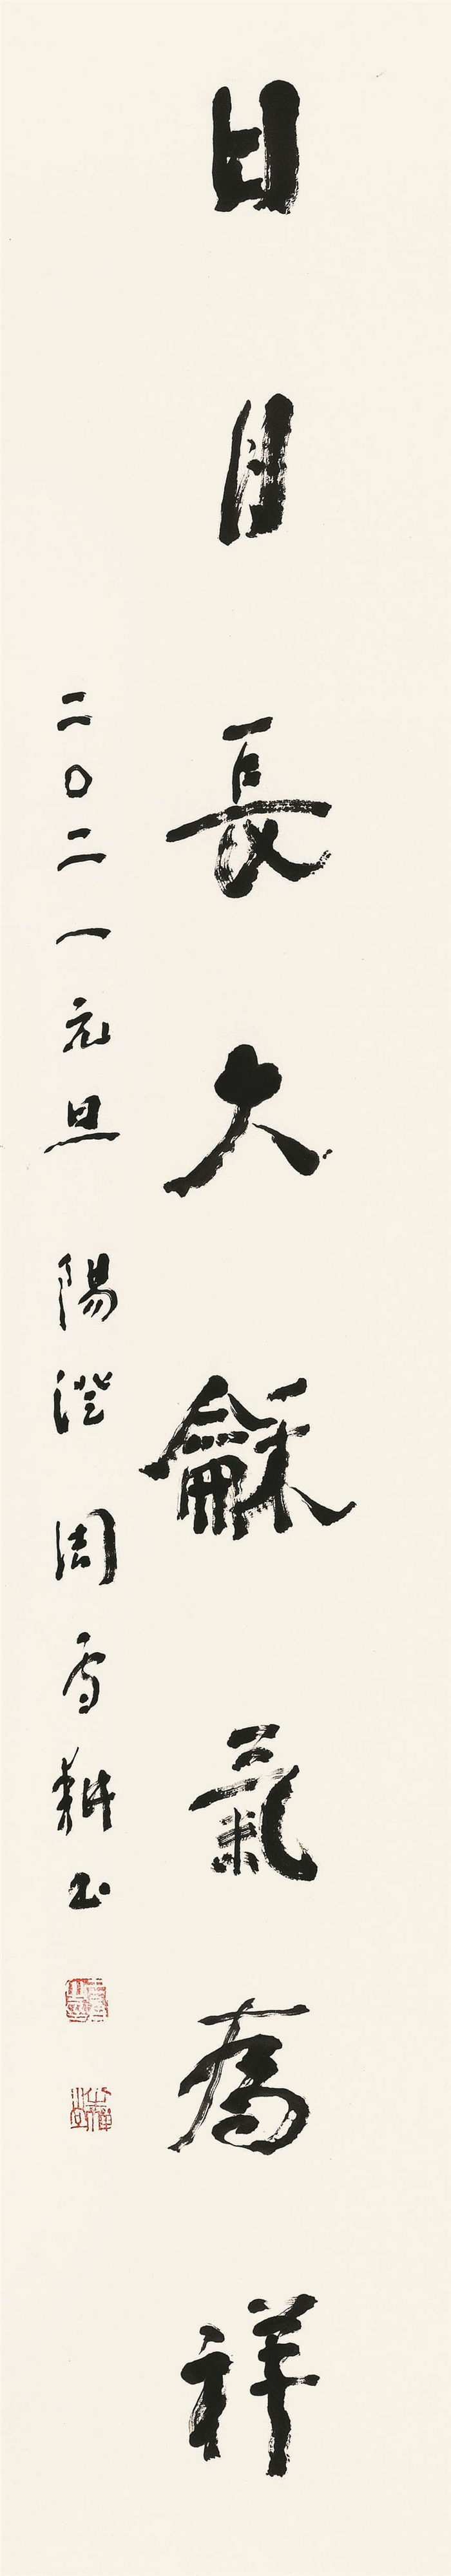 日月長久龢氣為祥
二〇二一元旦 陽澄周雪耕書